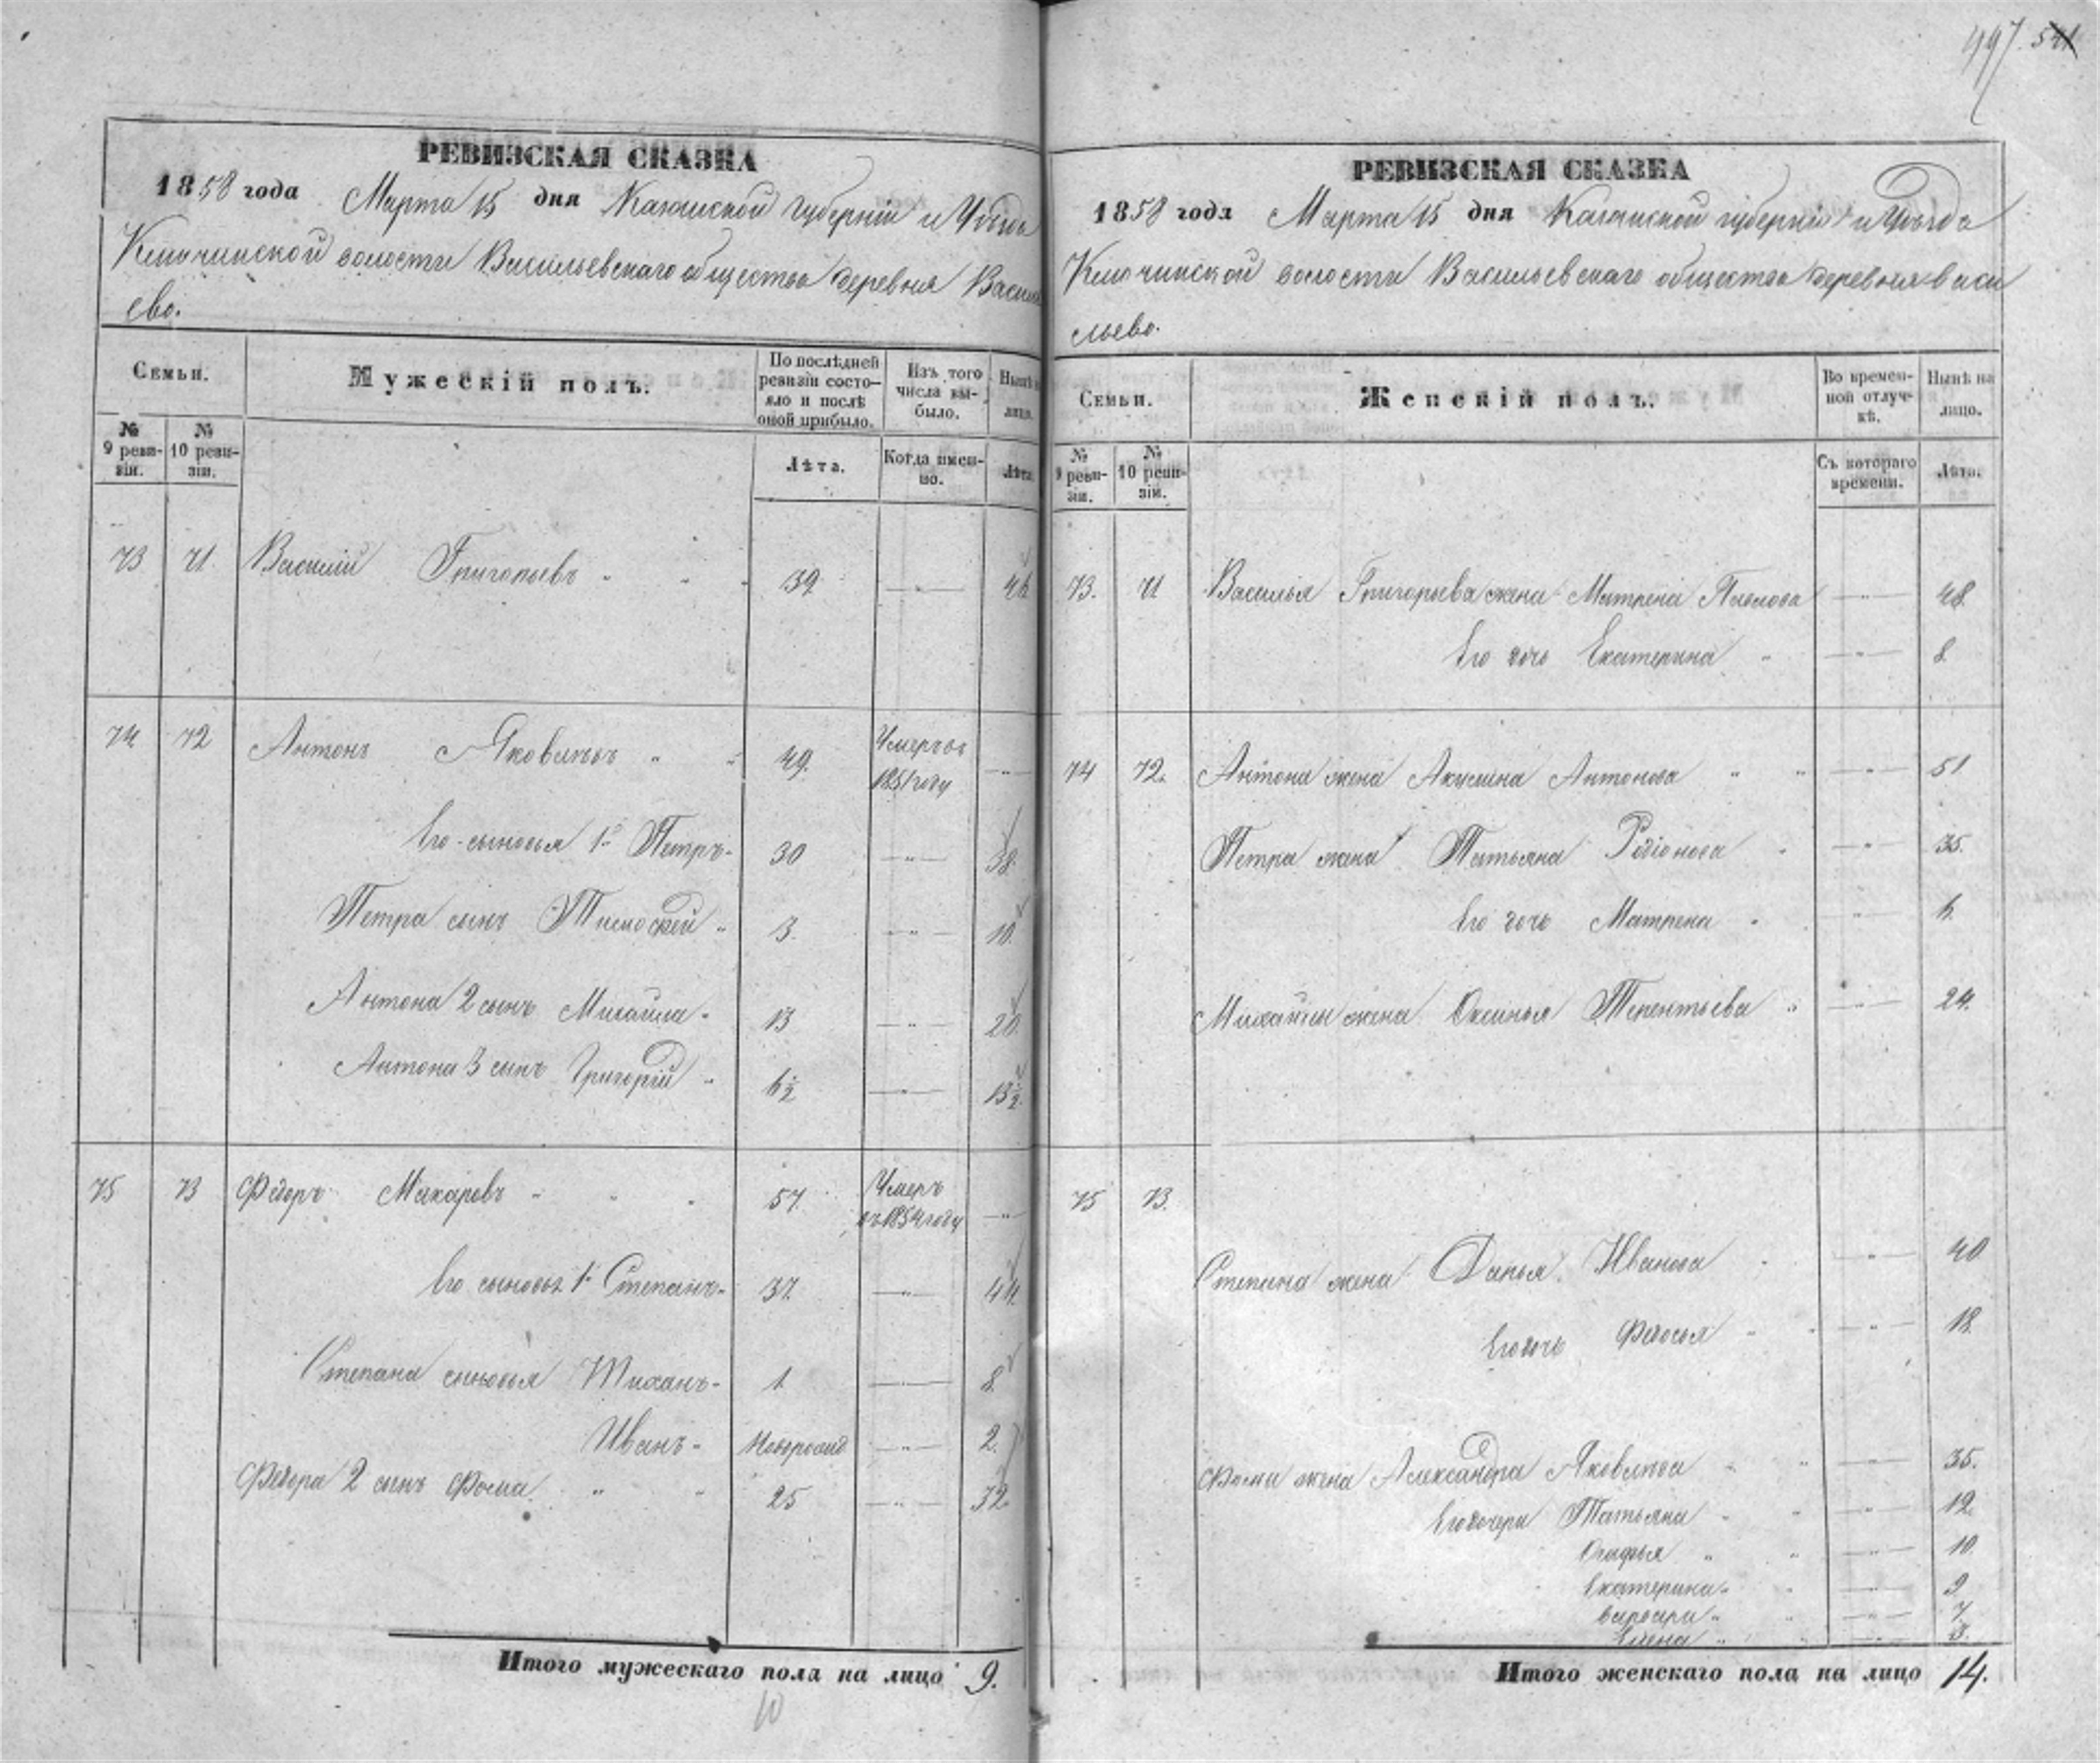 497. 541
РЕВИЗСКАЯ СКАЗКА
1858 года Марта 15 дня Казанской губернiи и Уѣзда
Ключинской волости Васильевскаго общества деревня Василь
ево.
Семьи.
Мужескiй полъ.
По послѣдней ревизiи состояло и послѣ оной прибыло.
Изъ того числа выбыло.
Нынѣ на лицо.
№ 9 ревизiи.
№ 10 ревизiи.
Лѣта.
Когда именно.
Лѣта.
73 71 Василiй Григорьевъ 39 46
74 72 Антонъ Яковлевъ 49. Умеръ въ 1851 году
Его сыновья 1й Петръ 30 38.
Петра сынъ Тимофей 3. 10.
Антона 2 сынъ Михайла 13 20.
Антона 3 сынъ Григорiй 6½ 13½.
75 73 Федоръ Макаровъ 57. Умеръ въ 1854 году
Его сыновья 1й Степанъ 37. 44.
Степана сыновья Тиханъ 1. 8.
Иванъ Новорожд 2.
Федора 2 сынъ Фома 25 32.
Итого мужескаго пола на лицо 9.
10
РЕВИЗСКАЯ СКАЗКА
1858 года Марта 15 дня Казанской губернiи и Уѣзда
Ключинской волости Васильевскаго общества деревня Васи
льево.
Семьи.
Женскiй полъ.
Во временной отлучкѣ.
Нынѣ на лицо.
№ 9 ревизiи.
№ 10 ревизiи.
Съ котораго времени.
Лѣта.
73. 71 Василья Григорьева жена Матрена Павлова 48.
Его дочь Екатерина 8.
74 72. Антона жена Акулина Антонова 51
Петра жена Татьяна Родiонова 35.
Его дочь Матрена 6.
Михайлы жена Оксинья Терентьева 24.
75 73.
Степана жена Дарья Иванова 40
Его дочь Федосья 18.
Фомы жена Александра Яковлева 35.
Его дочери Татьяна 12.
Огафья 10.
Екатерина 9.
Варвара 7.
Елена 3.
Итого женскаго пола на лицо 14.